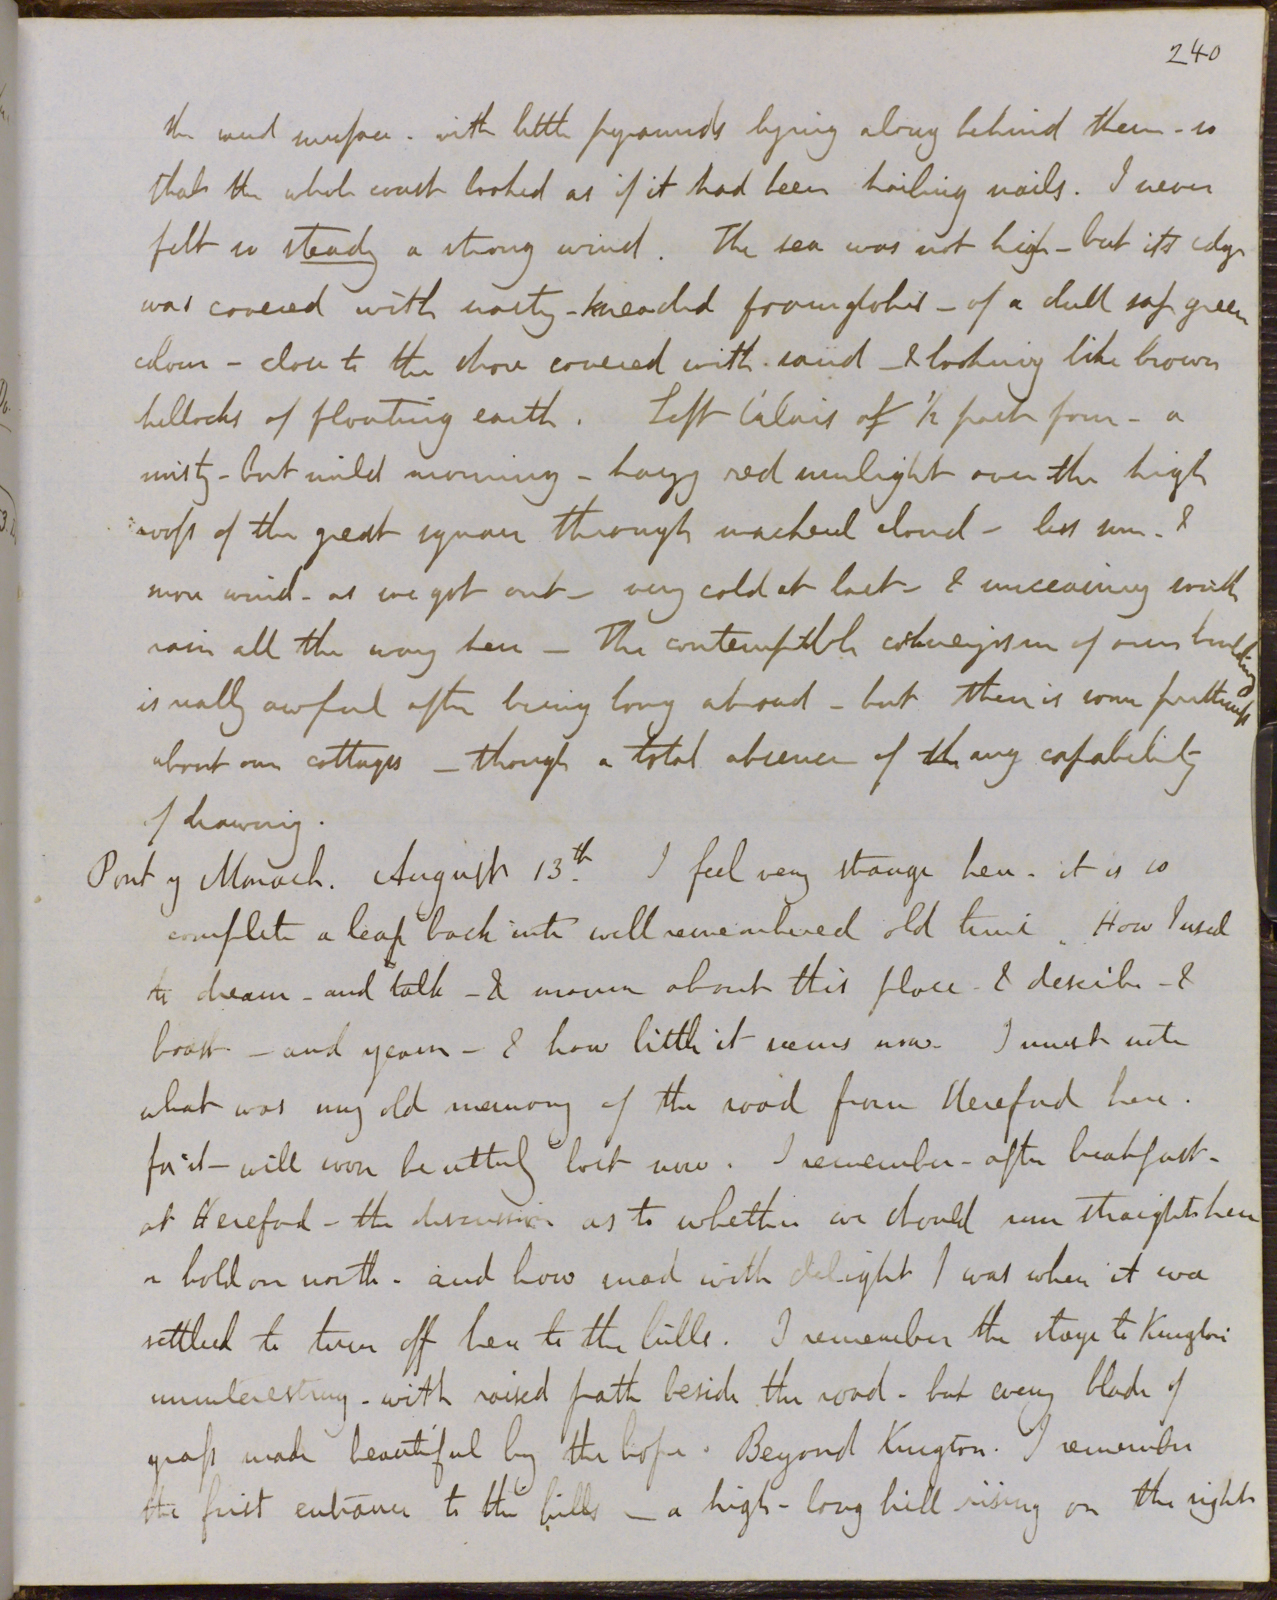 240
the sand surface - with little pyramids lying along behind them - so
that the whole coast looked as if it had been hailing nails. I never
felt so steady a strong wind. The sea was not high - but its edge
was covered with nasty - kneaded foamglobes - of a dull sap green
colour - close to the shore covered with sand - & looking like brown
hillocks of floating earth. Left Calais at 1/2 past four - a
misty - but mild morning - hazy red sunlight over the high
roofs of the great square through mackerel cloud - less sun - &
more wind - as we got out - very cold at last - & unceasing south
rain all the way here - The contemptible cockneyism of our buildings
is really awful after being long abroad - but there is some prettiness
about our cottages - though a total absence of any capability
of drawing.
Pont y Monach. August 13th. I feel very strange here - it is so
complete a leap back into well remembered old time. How I used
to dream - and talk - & mourn about this place - & describe - &
boast - and yearn - & how little it seems now - I must note
what was my old memory of the road from Hereford here.
for it - will soon be utterly lost now. I remember - after breakfast -
at Hereford - the discussion as to whether we should run straight here
or hold on north - and how mad with delight I was when it was
settled to turn off here to the hills. I remember the stage to Kington
uninteresting - with raised path beside the road - but every blade of
grass made beautiful by the hope. Beyond Kington. I remember
the first entrance to the hills - a high - long hill rising on the right